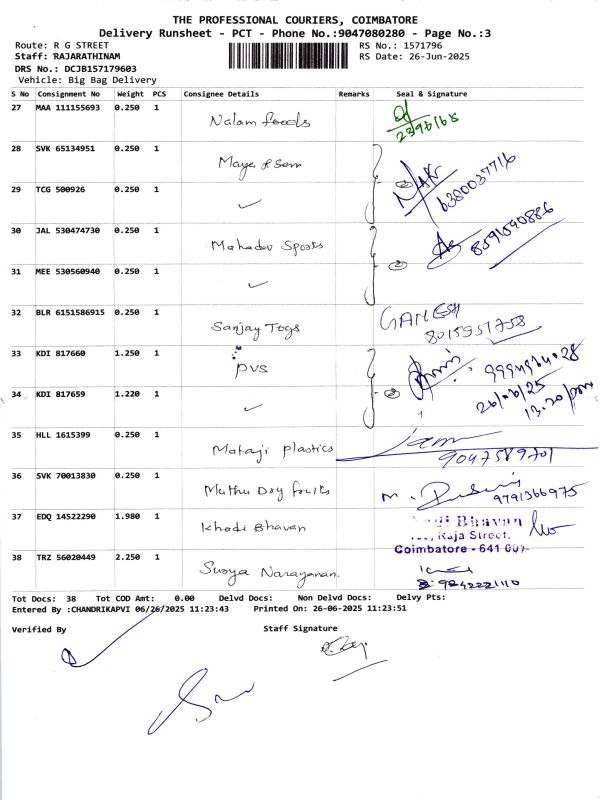 THE PROFESSIONAL COURIERS, COIMBATORE
Delivery Runsheet - PCT - Phone No.:9047080280 - Page No.:3
Route: R G STREET RS No.: 1571796
Staff: RAJARATHINAM RS Date: 26-Jun-2025
DRS No.: DCJB157179603
Vehicle: Big Bag Delivery
S No Consignment No Weight PCS Consignee Details Remarks Seal & Signature
27 MAA 111155693 0.250 1 Nalam foods
28 SVK 65134951 0.250 1 Maya & Som 6380037716
29 TCG 500926 0.250 1 ✓
30 JAL 530474730 0.250 1 Mahadev Sports 8591590886
31 MEE 530560940 0.250 1 ✓
32 BLR 6151586915 0.250 1 Sanjay Togs GANESH 8015951758
33 KDI 817660 1.250 1 PVS
34 KDI 817659 1.220 1 ✓ 26/6/25
35 HLL 1615399 0.250 1 Mataji plastics 9047589701
36 SVK 70013830 0.250 1 Muthu Dry fruits 9791366975
37 EDQ 14522290 1.980 1 Khadi Bhavan
Bhavan
Raja Street.
Coimbatore - 641 001
38 TRZ 56020449 2.250 1 Surya Narayanan. 9842221110
Tot Docs: 38 Tot COD Amt: 0.00 Delvd Docs: Non Delvd Docs: Delvy Pts:
Entered By :CHANDRIKAPVI 06/26/2025 11:23:43 Printed On: 26-06-2025 11:23:51
Verified By Staff Signature